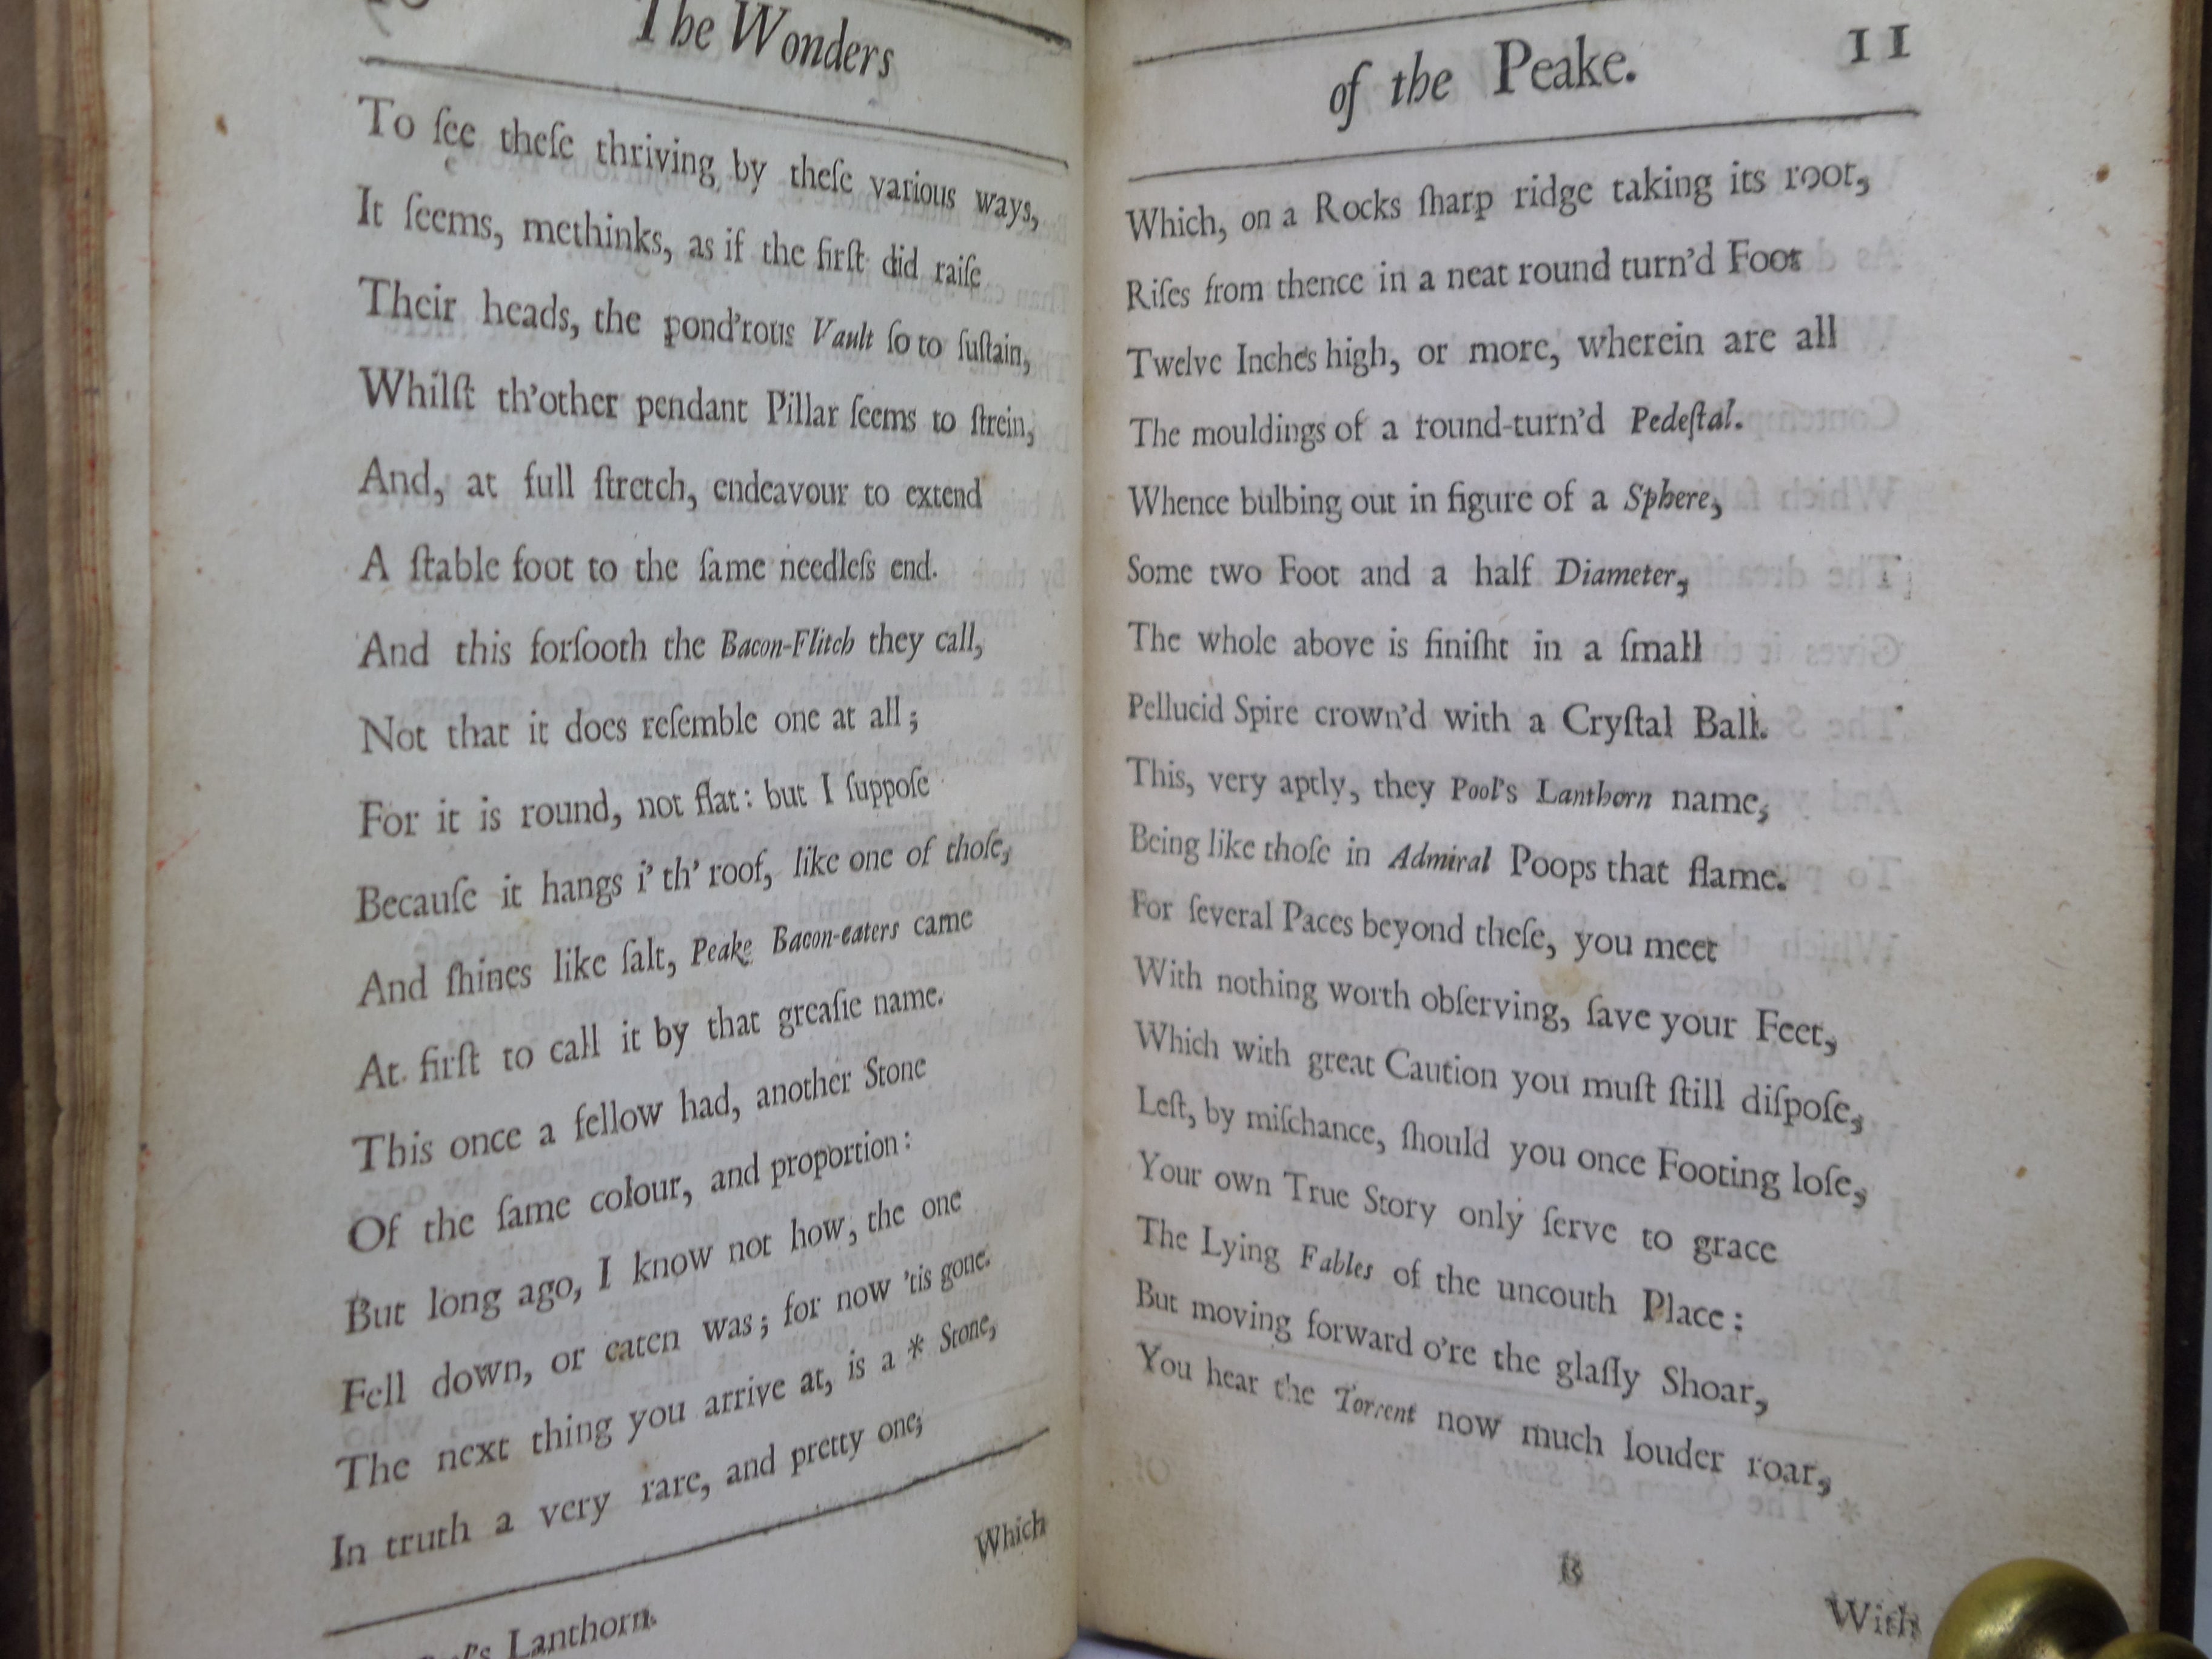 The Wonders
To ſee theſe thriving by theſe various ways,
It ſeems, methinks, as if the firſt did raiſe
Their heads, the pond'rous Vault ſo to ſuſtain,
Whilſt th'other pendant Pillar ſeems to ſtrein,
And, at full ſtretch, endeavour to extend
A ſtable foot to the ſame needleſs end.
And this forſooth the Bacon-Flitch they call,
Not that it does reſemble one at all;
For it is round, not flat: but I ſuppoſe
Becauſe it hangs i' th' roof, like one of thoſe,
And ſhines like ſalt, Peake Bacon-eaters came
At firſt to call it by that greaſie name.
This once a fellow had, another Stone
Of the ſame colour, and proportion:
But long ago, I know not how, the one
Fell down, or eaten was; for now 'tis gone.
The next thing you arrive at, is a * Stone,
In truth a very rare, and pretty one;
Which
Lanthorn.
of the Peake. 11
Which, on a Rocks ſharp ridge taking its root,
Riſes from thence in a neat round turn'd Foot
Twelve Inches high, or more, wherein are all
The mouldings of a round-turn'd Pedeſtal.
Whence bulbing out in figure of a Sphere,
Some two Foot and a half Diameter,
The whole above is finiſht in a ſmall
Pellucid Spire crown'd with a Cryſtal Ball.
This, very aptly, they Pool's Lanthorn name,
Being like thoſe in Admiral Poops that flame.
For ſeveral Paces beyond theſe, you meet
With nothing worth obſerving, ſave your Feet,
Which with great Caution you muſt ſtill diſpoſe,
Leſt, by miſchance, ſhould you once Footing loſe,
Your own True Story only ſerve to grace
The Lying Fables of the uncouth Place:
But moving forward o're the glaſſy Shoar,
You hear the Torrent now much louder roar,
B
With